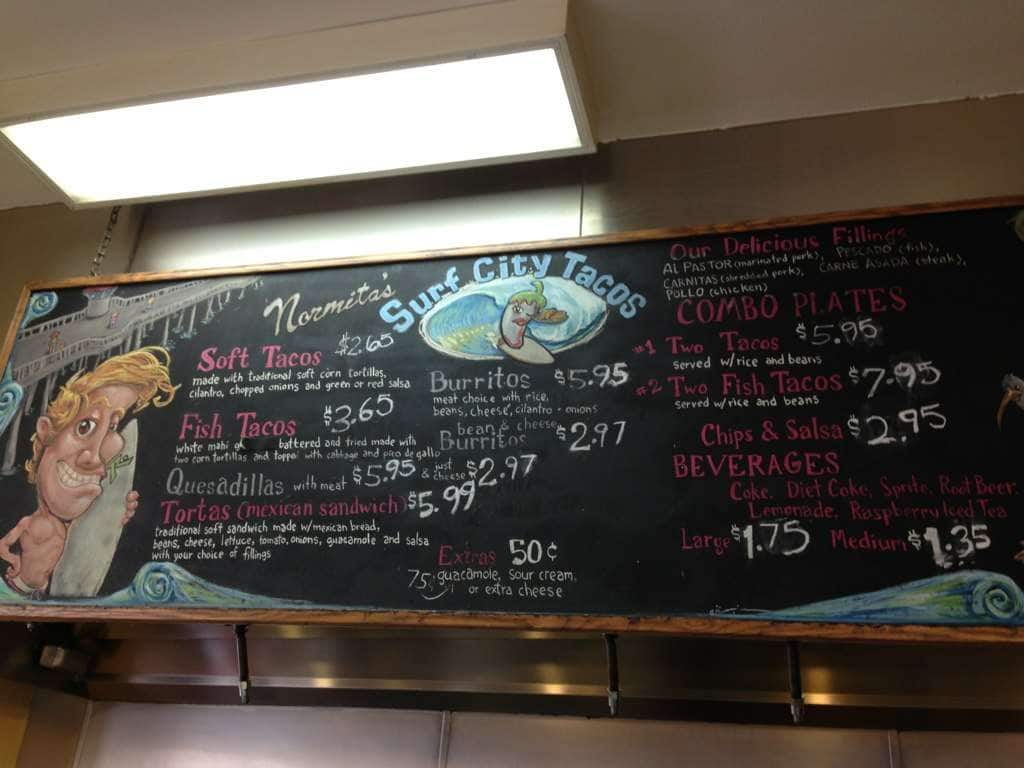 Normita's
Surf City Tacos
Soft Tacos $2.65
made with traditional soft corn tortillas,
cilantro, chopped onions and green or red salsa
Fish Tacos $3.65
white mahi battered and fried made with
two corn tortillas and topped with cabbage and pico de gallo
Quesadillas with meat $5.95 & just cheese $2.97
Tortas (mexican sandwich) $5.99
traditional soft sandwich made w/mexican bread,
beans, cheese, lettuce, tomato, onions, guacamole and salsa
with your choice of fillings
Burritos $5.95
meat choice with rice,
beans, cheese, cilantro - onions
bean & cheese
Burritos $2.97
Extras 50¢
75¢ guacamole, sour cream,
or extra cheese
Our Delicious Fillings
AL PASTOR (marinated pork), PESCADO (fish),
CARNITAS (shredded pork), CARNE ASADA (steak),
POLLO (chicken)
COMBO PLATES
#1 Two Tacos $5.95
served w/rice and beans
#2 Two Fish Tacos $7.95
served w/rice and beans
Chips & Salsa $2.95
BEVERAGES
Coke, Diet Coke, Sprite, Root Beer
Lemonade, Raspberry Iced Tea
Large $1.75 Medium $1.35